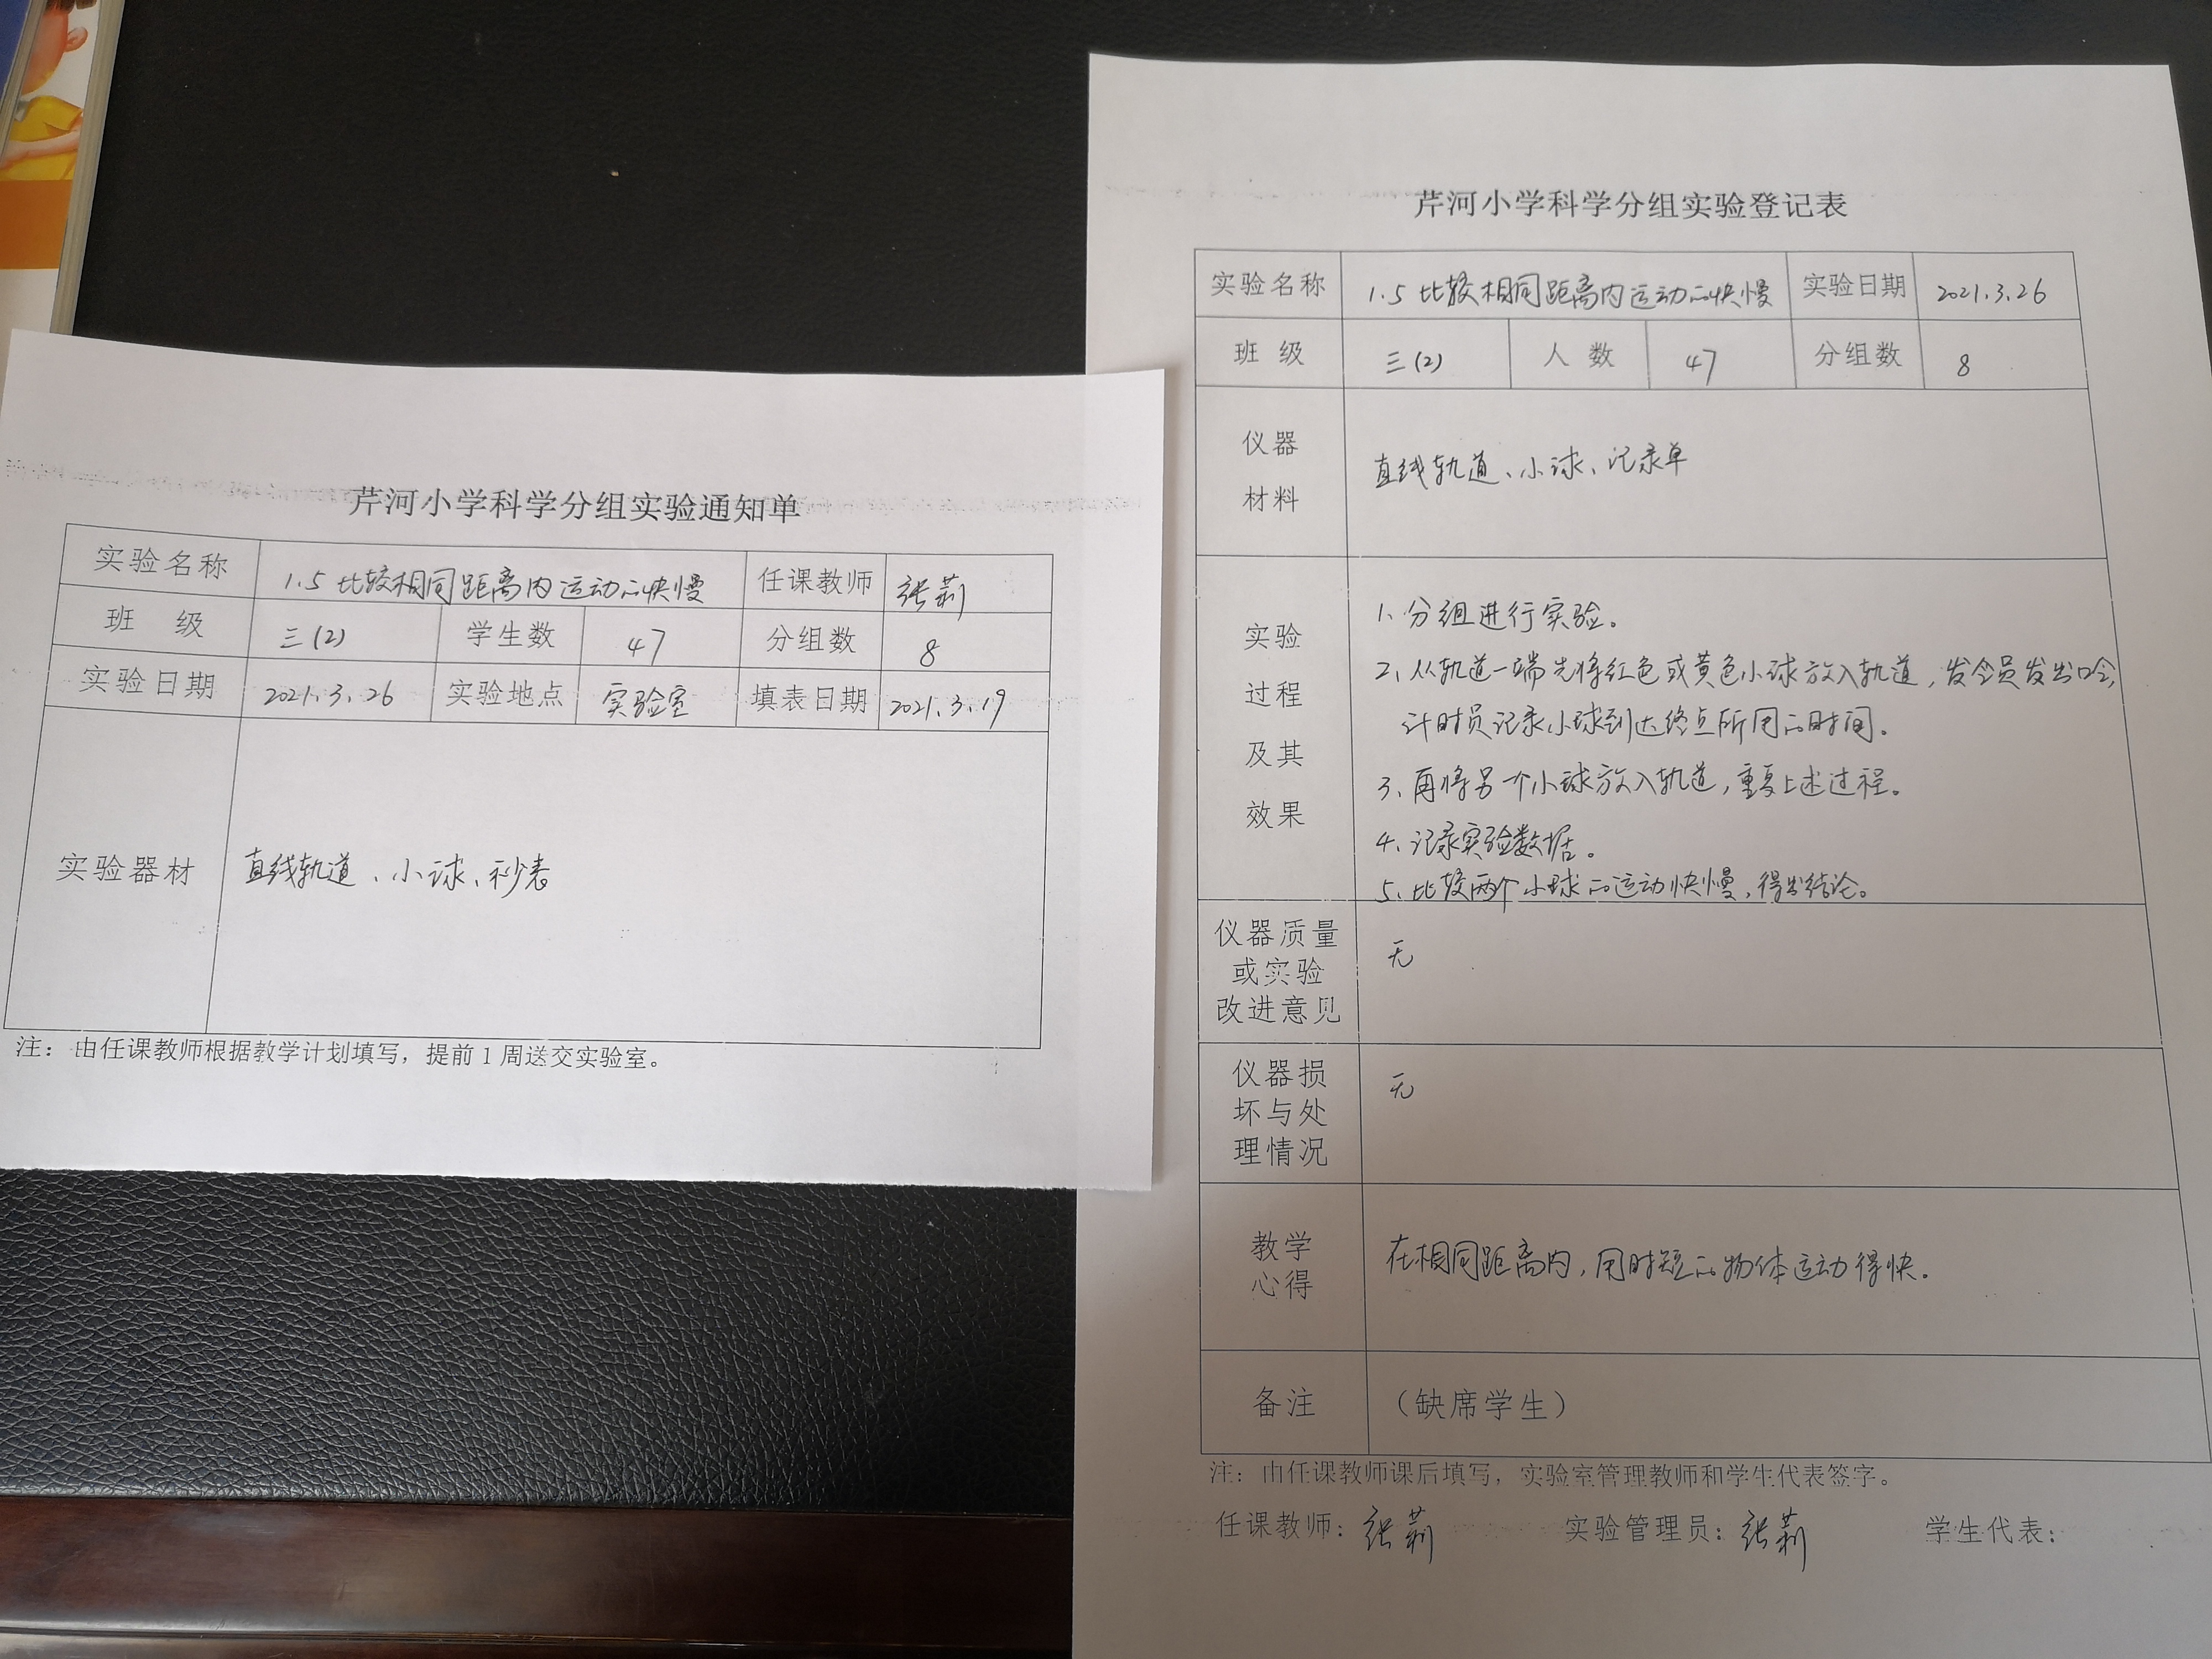 芹河小学科学分组实验通知单
实验名称 1.5 比较相同距离内运动的快慢 任课教师 张莉
班 级 三(2) 学生数 47 分组数 8
实验日期 2021.3.26 实验地点 实验室 填表日期 2021.3.19
实验器材 直线轨道、小球、秒表
注：由任课教师根据教学计划填写，提前1周送交实验室。
芹河小学科学分组实验登记表
实验名称 1.5 比较相同距离内运动的快慢 实验日期 2021.3.26
班 级 三(2) 人 数 47 分组数 8
仪器
材料
直线轨道、小球、记录单
实验
过程
及其
效果
1、分组进行实验。
2、从轨道一端先将红色或黄色小球放入轨道，发令员发出口令，
计时员记录小球到达终点所用的时间。
3、再将另一个小球放入轨道，重复上述过程。
4、记录实验数据。
5、比较两个小球的运动快慢，得出结论。
仪器质量
或实验
改进意见
无
仪器损
坏与处
理情况
无
教学
心得
在相同距离内，用时短的物体运动得快。
备注 （缺席学生）
注：由任课教师课后填写，实验室管理教师和学生代表签字。
任课教师：张莉 实验管理员：张莉 学生代表：